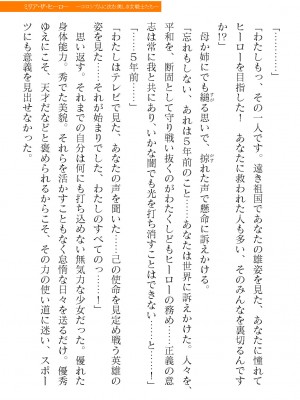 ミリア・ザ・ヒーロー
「…………」
「わたしもっ、その一人です。遠き祖国であなたの雄姿を見た、あなたに憧れて
ヒーローを目指した！　あなたに救われた人も多い、そのみんなを裏切るんです
か!?」
母か姉にでも縋る思いで、掠れた声で懸命に訴えかける。
「忘れもしない、あれは５年前のこと――あなたは世界に訴えかけた。人々を、
平和を、断固として守り戦い抜くのがわたくしどもヒーローの務め……正義の意
志は常に我と共にあり、いかなる闇でも光を打ち消すことはできない、と……！」
「……５年前……」
「わたしはテレビで見た、あなたの声を聞いた……己の使命を見定め戦う英雄の
姿を見た……それが始まりでした、わたしのすべてのっ……！」
思い返す。それまでの自分は何にも打ち込めない無気力な少女だった。優れた
身体能力。秀でた美貌。それらを活かすこともなく怠惰な日々を送るだけ。優秀
ゆえにこそ、天才だなどと褒められるからこそ、その力の使い道に迷い、スポー
ツにも意義を見出せなかった。